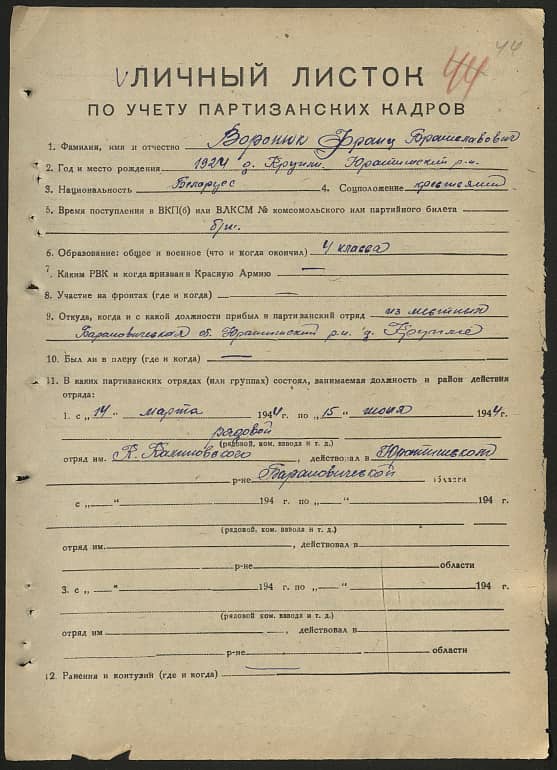 44 44
√ЛИЧНЫЙ ЛИСТОК
ПО УЧЕТУ ПАРТИЗАНСКИХ КАДРОВ
1. Фамилия, имя и отчество Воронюк Франц Брониславович
2. Год и место рождения 1924 д. Юратишский р-н.
3. Национальность Беларус 4. Соцположение крестьянин
5. Время поступления в ВКП(б) или ВЛКСМ № комсомольского или партийного билета
б/п.
6. Образование: общее и военное (что и когда окончил) 4 класса
7. Каким РВК и когда призван в Красную Армию —
8. Участие на фронтах (где и когда)
9. Откуда, когда и с какой должности прибыл в партизанский отряд из местных
Барановическая об. Юратишский р-н. д.
10. Был ли в плену (где и когда) —
11. В каких партизанских отрядах (или группах) состоял, занимаемая должность и район действия
отряда:
1. с „14" марта 1944 г. по „15" июня 1944 г.
рядовой
(рядовой, ком. взвода и т. д.)
отряд им. К. Калиновского, действовал в Юратишском
р-не Барановичской области
с „ — " 194 г. по „ — " 194 г.
(рядовой, ком. взвода и т. д.)
отряд им. , действовал в
р-не области
3. с „ — " 194 г. по „ — " 194 г.
(рядовой, ком. взвода и т. д.)
отряд им , действовал в
р-не области
12. Ранения и контузии (где и когда) —